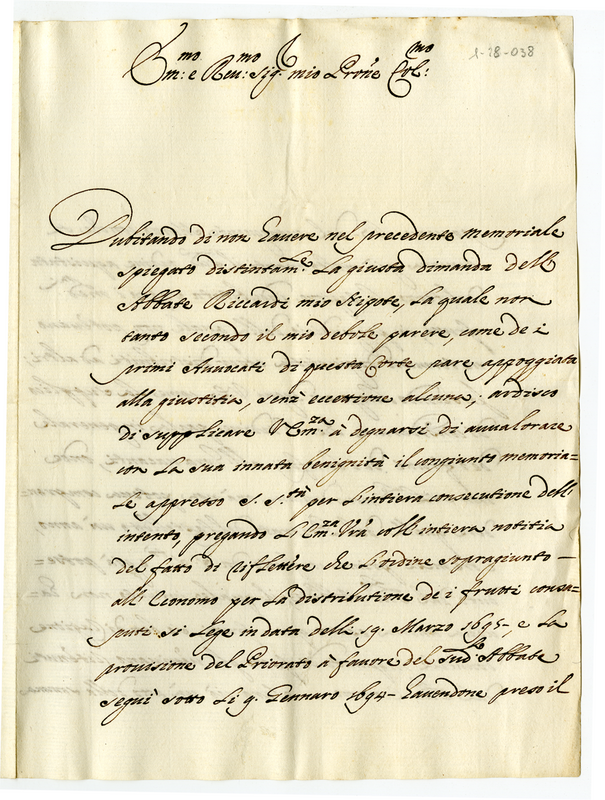 1-28-038
Em:mo e Reu:mo Sig.r mio Prone Col:mo
Dubitando di non hauere nel precedente memoriale
spiegato distintam.e La giusta dimanda dell
Abbate Riccardi mio Nipote, La quale non
tanto secondo il mio debole parere, come de i
primi Auuocati di questa Corte pare appoggiata
alla giustitia, senz eccettione alcuna, ardisco
di supplicare VEm.za à degnarsi di auualorare
con La sua innata benignità il congiunto memoria=
Le appresso S. S.tà per L'intiera consecutione dell
intento, pregando L'Em.za Vrã coll intiera notitia
del fatto di riflettere che L'ordine sopragiunto -
all Economo per La distributione de i frutti consa=
puti si Lege in data delli 19. Marzo 1695-, e La
prouisione del Priorato à fauore del Sud.o Abbate
seguì sotto Li 9. Gennaro 1694- hauendone preso il